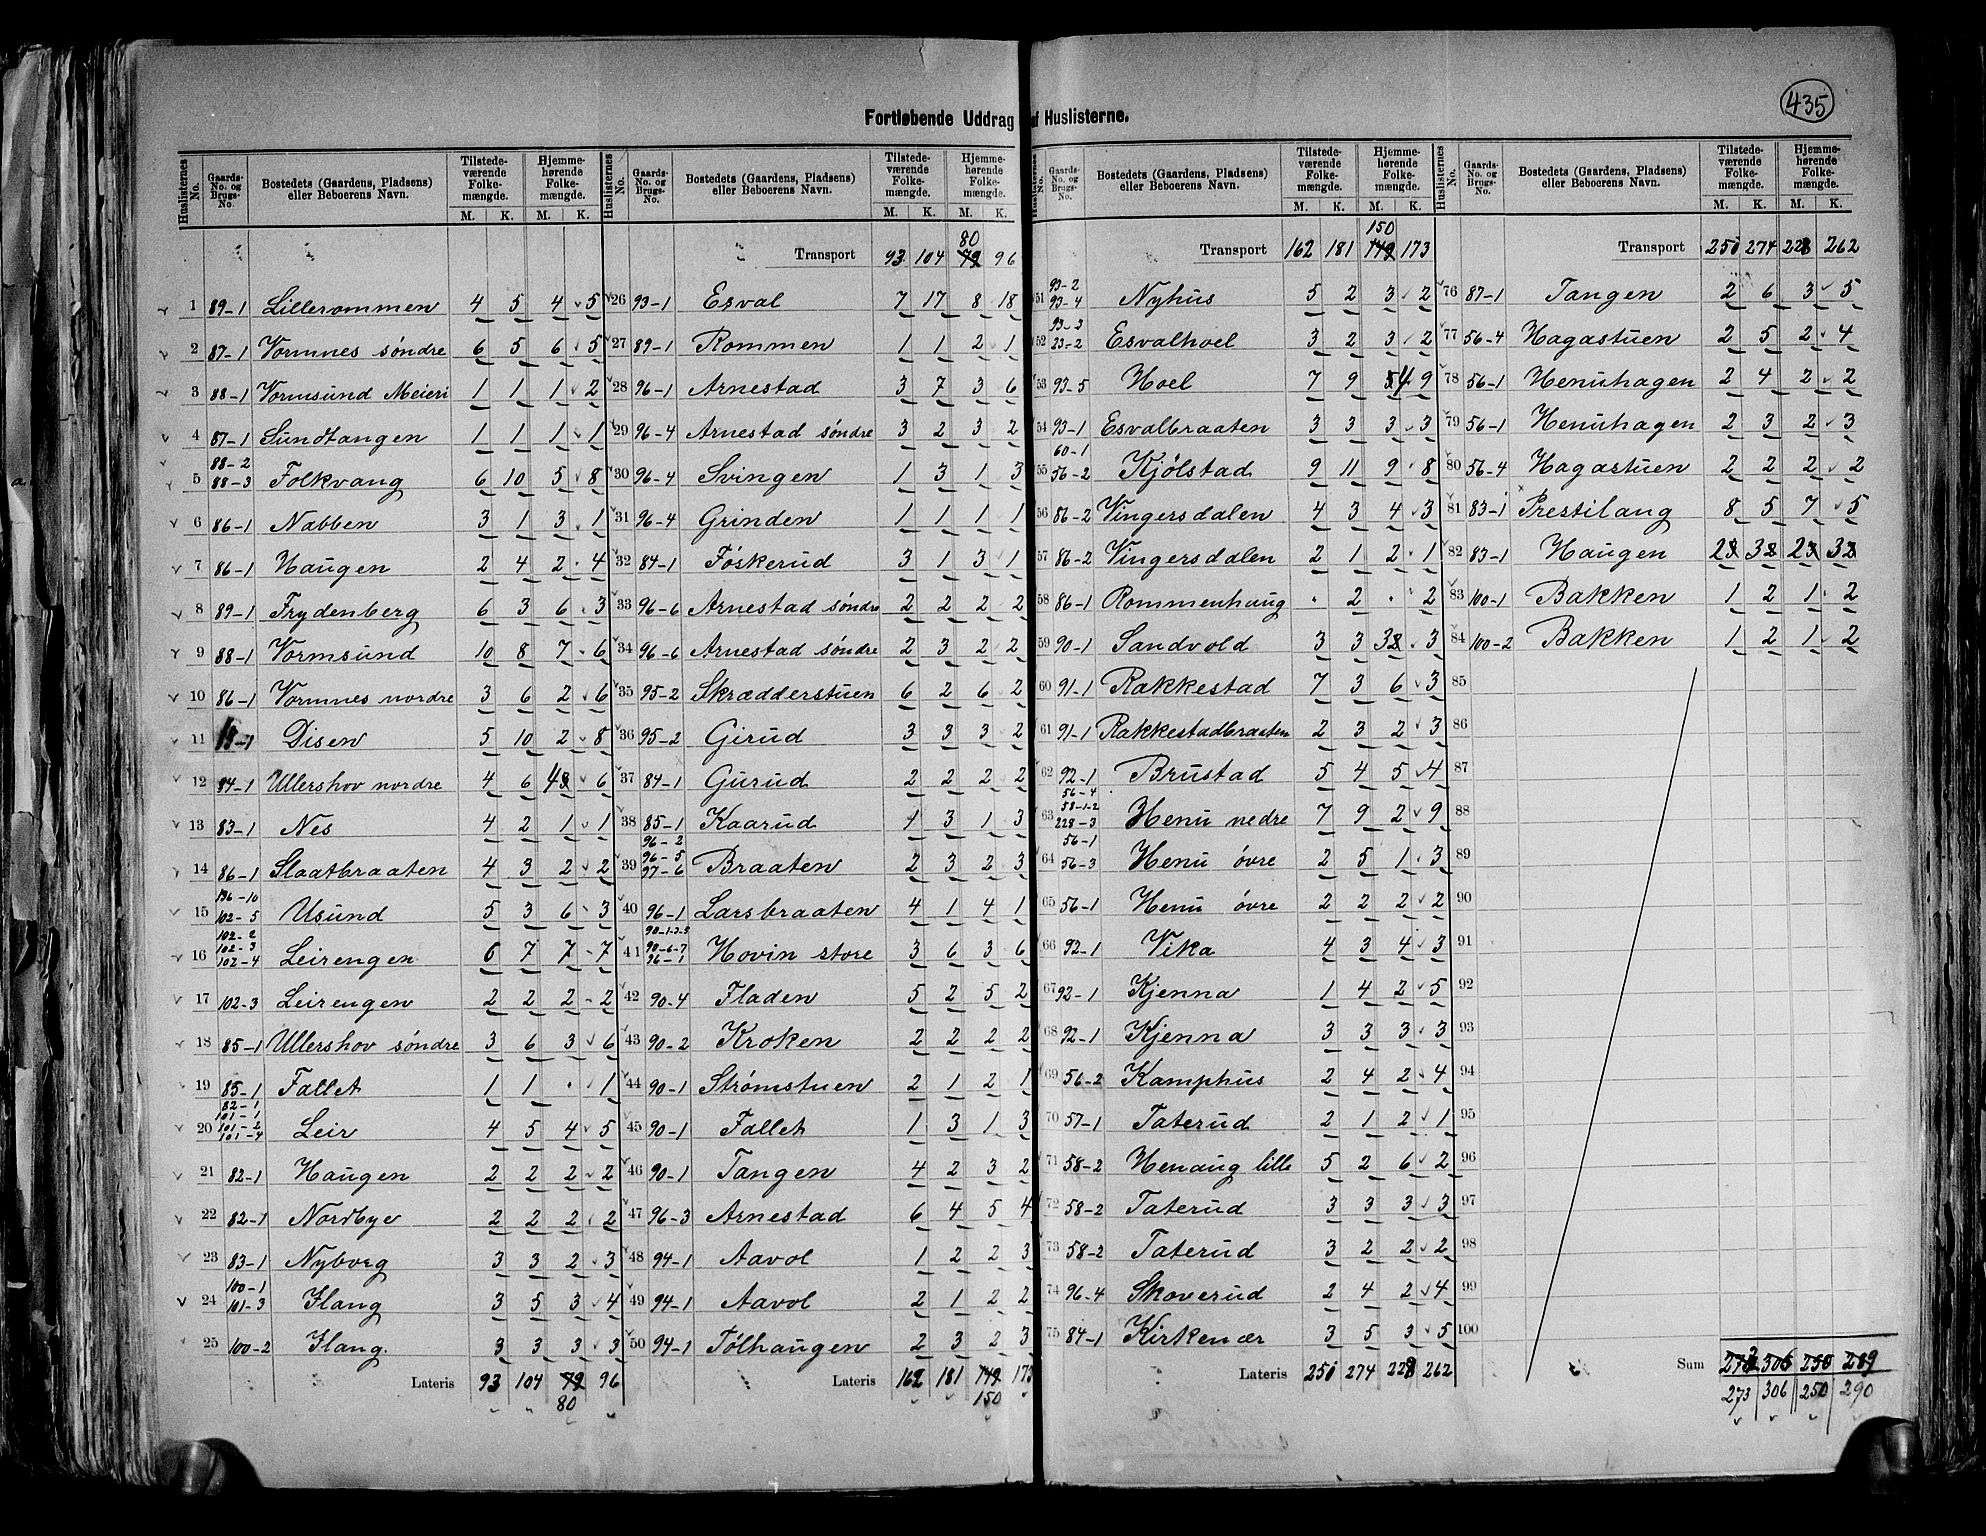 435
Fortløbende Uddrag af Huslisterne.
Huslisternes No. Gaards-No. og Brugs-No. Bostedets (Gaardens, Pladsens) eller Beboerens Navn. Tilstedeværende Folkemængde. M. K. Hjemmehørende Folkemængde. M. K.
1 89-1 Lillerommen 4 5 4 5
2 87-1 Vormnes søndre 6 5 6 5
3 88-1 Vormsund Meieri 1 1 1 2
4 87-1 Sundtangen 1 1 1 1
5 88-2 88-3 Folkvang 6 10 5 8
6 86-1 Nabben 3 1 3 1
7 86-1 Haugen 2 4 2 4
8 89-1 Frydenberg 6 3 6 3
9 88-1 Vormsund 10 8 7 6
10 86-1 Vormnes nordre 3 6 2 6
11 Disen 5 10 2 8
12 84-1 Ullershov nordre 4 6 4 6
13 83-1 Nes 4 2 1 1
14 86-1 Slaatbraaten 4 3 2 2
15 136-10 102-5 Usund 5 3 6 3
16 102-2 102-3 102-4 Leirengen 6 7 7 7
17 102-3 Leirengen 2 2 2 2
18 85-1 Ullershov søndre 3 6 3 6
19 85-1 Fallet 1 1 · 1
20 82-1 101-1 101-2 101-4 Leir 4 5 4 5
21 82-1 Haugen 2 2 2 2
22 82-1 Nordbye 2 2 2 2
23 83-1 Nyborg 3 3 2 3
24 100-1 101-3 Ilang 3 5 3 4
25 100-2 Ilang. 3 3 3 3
Lateris 93 104 79 96
80
Huslisternes No. Gaards-No. og Brugs-No. Bostedets (Gaardens, Pladsens) eller Beboerens Navn. Tilstedeværende Folkemængde. M. K. Hjemmehørende Folkemængde. M. K.
80
Transport 93 104 79 96
26 93-1 Esval 7 17 8 18
27 89-1 Rommen 1 1 2 1
28 96-1 Arnestad 3 7 3 6
29 96-4 Arnestad søndre 3 2 3 2
30 96-4 Svingen 1 3 1 3
31 96-4 Grinden 1 1 1 1
32 84-1 Føskerud 3 1 3 1
33 96-6 Arnestad søndre 2 2 2 2
34 96-6 Arnestad søndre 2 3 2 2
35 95-2 Skrædderstuen 6 2 6 2
36 95-2 Girud 3 3 3 2
37 84-1 Gurud 2 2 2 2
38 85-1 Kaarud 1 3 1 3
39 96-2 96-5 97-6 Braaten 2 3 2 3
40 96-1 Larsbraaten 4 1 4 1
41 90-1-3-5 90-6-7 96-1 Hovin store 3 6 3 6
42 90-4 Fladen 5 2 5 2
43 90-2 Kroken 2 2 2 2
44 90-1 Strømstuen 2 1 2 1
45 90-1 Fallet 1 3 1 3
46 90-1 Tangen 4 2 3 2
47 96-3 Arnestad 6 4 5 4
48 94-1 Aavol 1 2 2 3
49 94-1 Aavol 2 1 2 2
50 94-1 Tølhaugen 2 3 2 3
Lateris 162 181 149 173
150
Huslisternes No. Gaards-No. og Brugs-No. Bostedets (Gaardens, Pladsens) eller Beboerens Navn. Tilstedeværende Folkemængde. M. K. Hjemmehørende Folkemængde. M. K.
150
Transport 162 181 149 173
51 93-2 93-4 Nyhus 5 2 3 2
52 93-3 23-2 Esvalhoel 3 2 3 2
53 93-5 Hoel 7 9 4 9
54 93-1 Esvalbraaten 3 3 3 3
55 60-1 56-2 Kjølstad 9 11 9 8
56 86-2 Vingersdalen 4 3 4 3
57 86-2 Vingersdalen 2 1 2 1
58 86-1 Rommenhaug · 2 · 2
59 90-1 Sandvold 3 3 3 3
60 91-1 Rakkestad 7 3 6 3
61 91-1 Rakkestadbraaten 2 3 2 3
62 92-1 Brustad 5 4 5 4
63 56-4 58-1-2 228-3 Henu nedre 7 9 2 9
64 56-1 56-3 Henu øvre 2 5 1 3
65 56-1 Henu øvre 2 2 2 2
66 92-1 Vika 4 3 4 3
67 92-1 Kjenna 1 4 2 5
68 92-1 Kjenna 3 3 3 3
69 56-2 Kamphus 2 4 2 4
70 57-1 Taterud 2 1 2 1
71 58-2 Henaug lille 5 2 6 2
72 58-2 Taterud 3 3 3 3
73 58-2 Taterud 3 2 2 2
74 96-4 Skoverud 2 4 2 4
75 84-1 Kirkenær 3 5 3 5
Lateris 250 274 228 262
Huslisternes No. Gaards-No. og Brugs-No. Bostedets (Gaardens, Pladsens) eller Beboerens Navn. Tilstedeværende Folkemængde. M. K. Hjemmehørende Folkemængde. M. K.
Transport 250 274 228 262
76 87-1 Tangen 2 6 3 5
77 56-4 Hagastuen 2 5 2 4
78 56-1 Henuhagen 2 4 2 2
79 56-1 Henuhagen 2 3 2 3
80 56-4 Hagastuen 2 2 2 2
81 83-1 Prestilang 8 5 7 5
82 83-1 Haugen 2 3 2 3
83 100-1 Bakken 1 2 1 2
84 100-2 Bakken 1 2 1 2
85
86
87
88
89
90
91
92
93
94
95
96
97
98
99
100
Sum 273 306 250 289
273 306 250 290